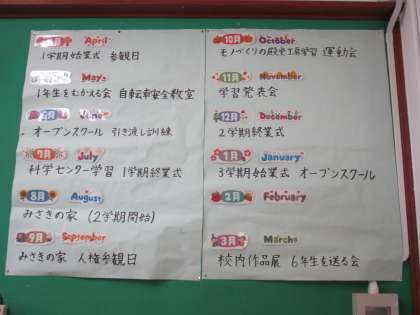 April
1学期始業式 参観日
May
1年生をむかえる会 自転車安全教室
June
オープンスクール 引き渡し訓練
7月 July
科学センター学習 1学期終業式
8月 August
みさきの家 (2学期開始)
9月 September
みさきの家 人権参観日
10月 October
モノづくりの殿堂工房学習 運動会
11月 November
学習発表会
12月 December
2学期終業式
1月 January
3学期始業式 オープンスクール
2月 February
3月 March
校内作品展 6年生を送る会